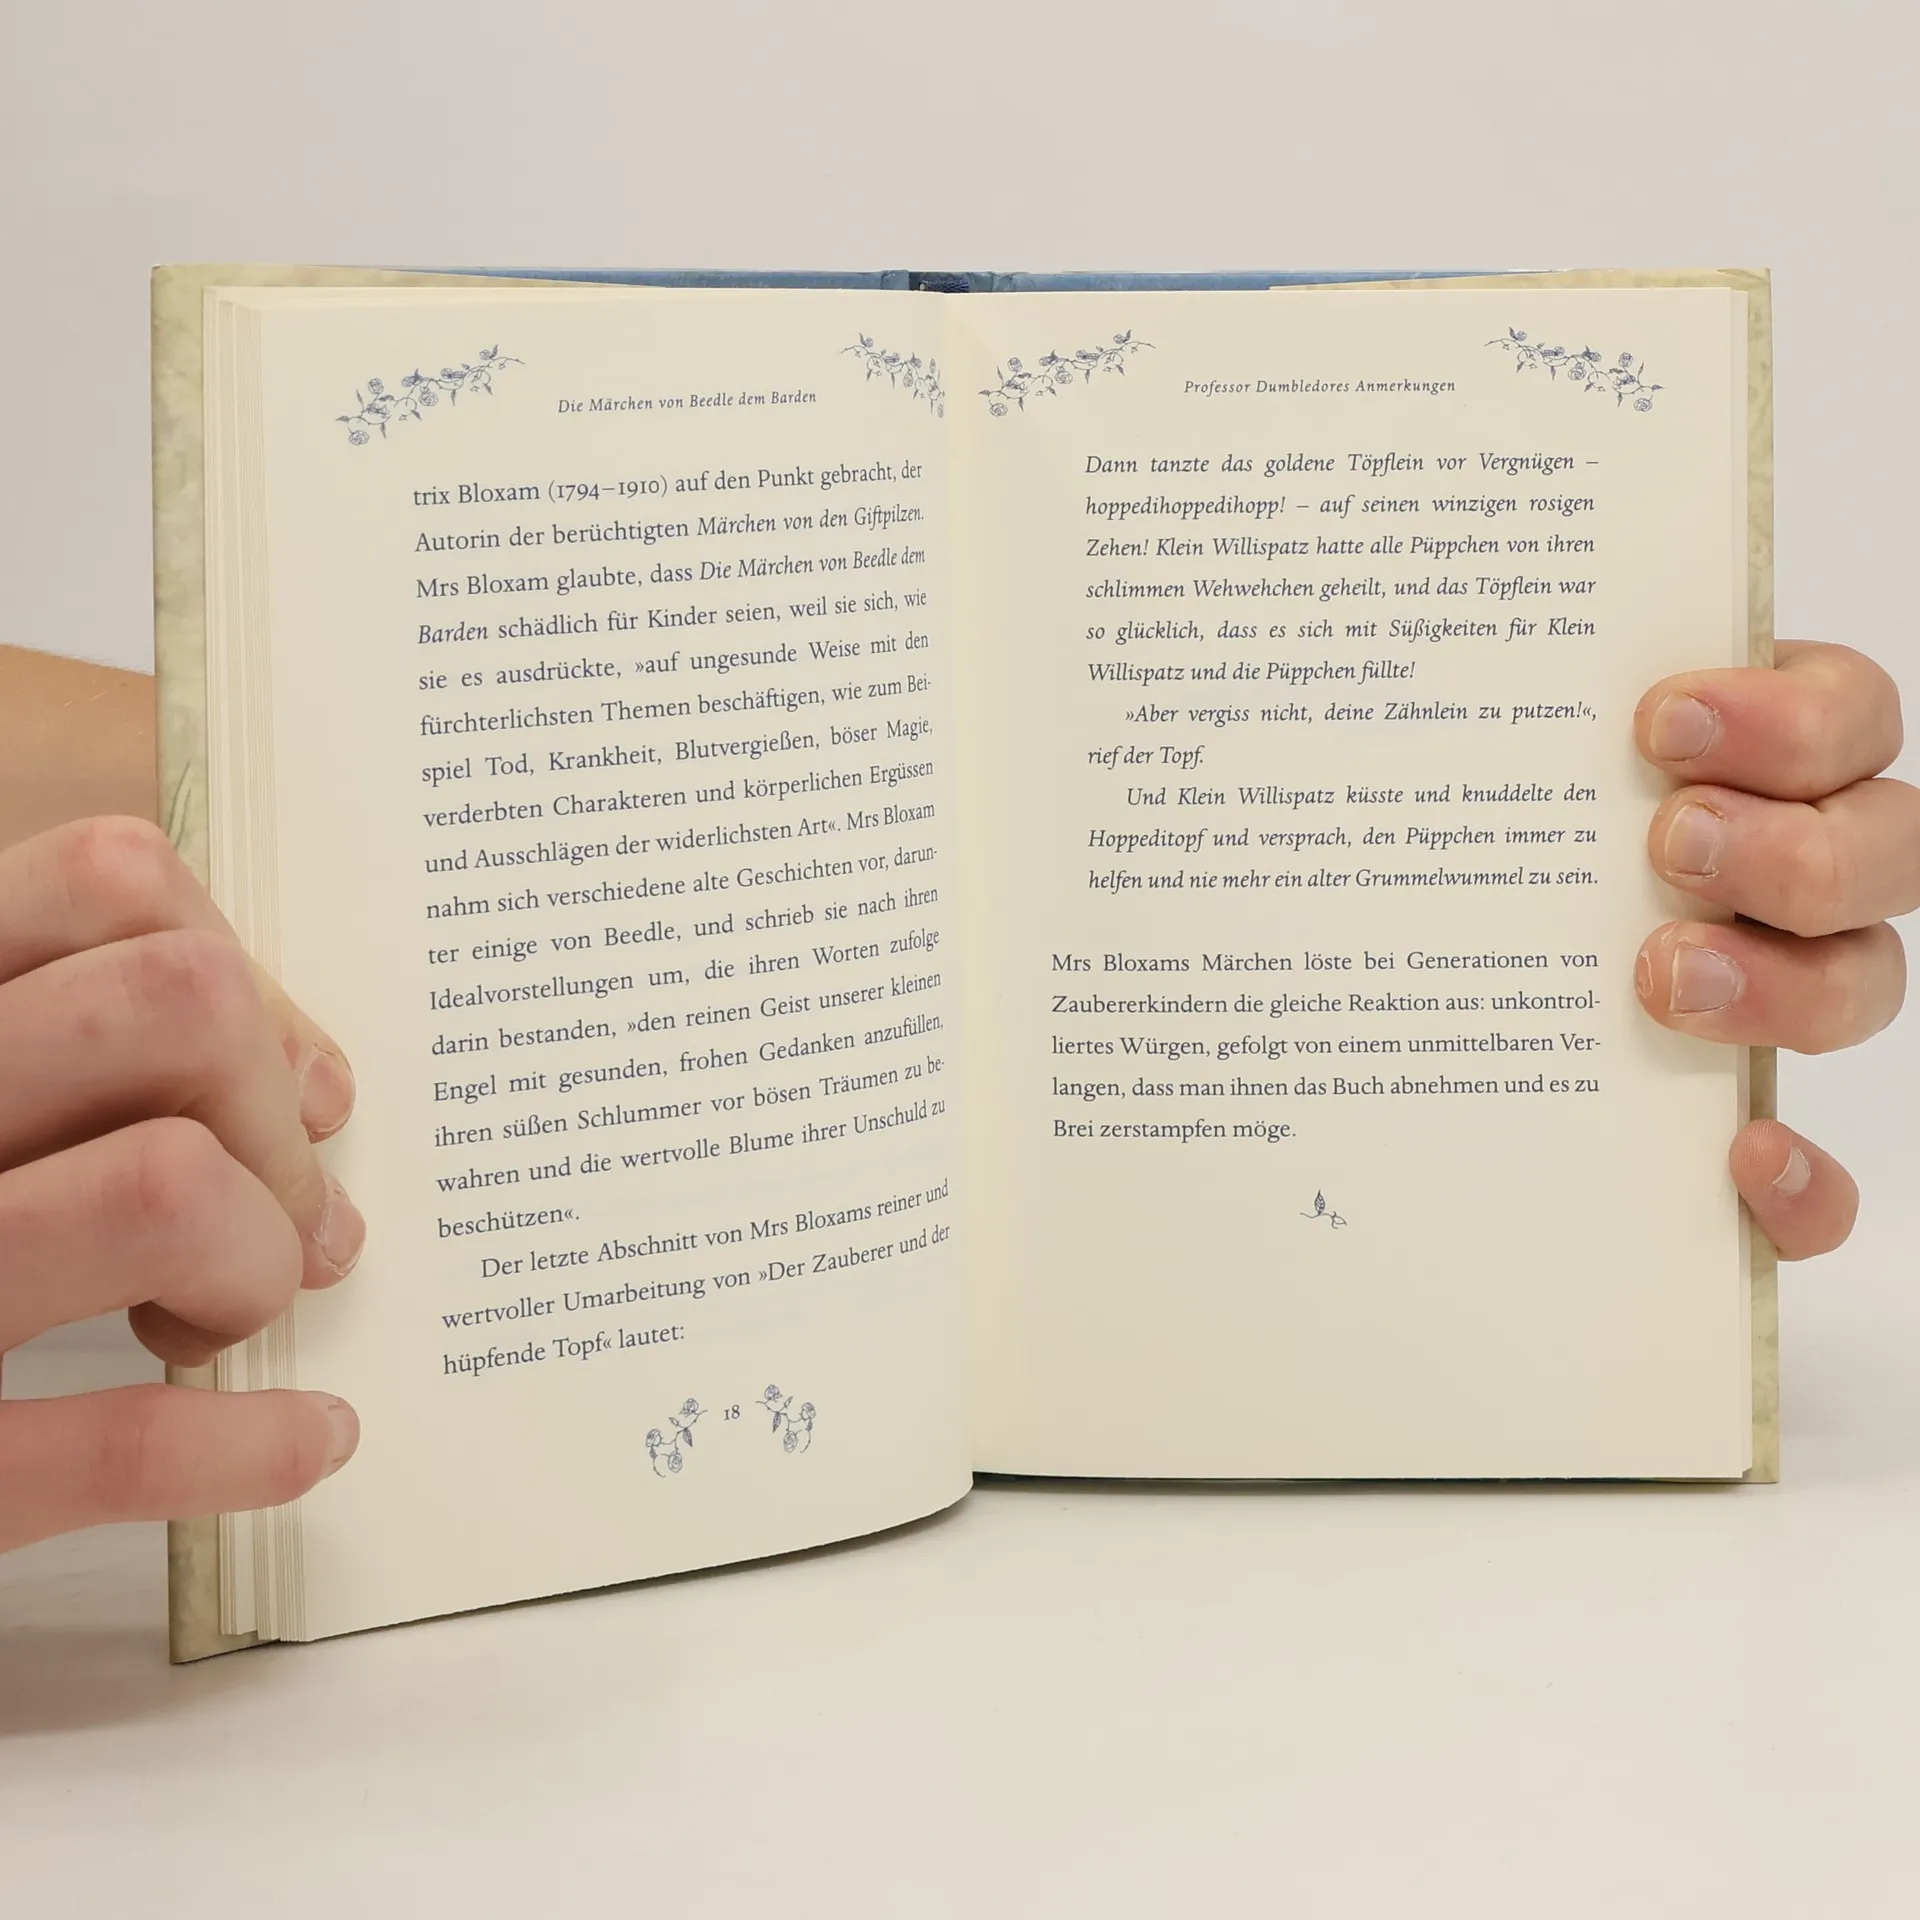 Die Märchen von Beedle dem Barden
trix Bloxam (1794–1910) auf den Punkt gebracht, der
Autorin der berüchtigten Märchen von den Giftpilzen.
Mrs Bloxam glaubte, dass Die Märchen von Beedle dem
Barden schädlich für Kinder seien, weil sie sich, wie
sie es ausdrückte, »auf ungesunde Weise mit den
fürchterlichsten Themen beschäftigen, wie zum Bei-
spiel Tod, Krankheit, Blutvergießen, böser Magie,
verderbten Charakteren und körperlichen Ergüssen
und Ausschlägen der widerlichsten Art«. Mrs Bloxam
nahm sich verschiedene alte Geschichten vor, darun-
ter einige von Beedle, und schrieb sie nach ihren
Idealvorstellungen um, die ihren Worten zufolge
darin bestanden, »den reinen Geist unserer kleinen
Engel mit gesunden, frohen Gedanken anzufüllen,
ihren süßen Schlummer vor bösen Träumen zu be-
wahren und die wertvolle Blume ihrer Unschuld zu
beschützen«.
Der letzte Abschnitt von Mrs Bloxams reiner und
wertvoller Umarbeitung von »Der Zauberer und der
hüpfende Topf« lautet:
18
Professor Dumbledores Anmerkungen
Dann tanzte das goldene Töpflein vor Vergnügen –
hoppedihoppedihopp! – auf seinen winzigen rosigen
Zehen! Klein Willispatz hatte alle Püppchen von ihren
schlimmen Wehwehchen geheilt, und das Töpflein war
so glücklich, dass es sich mit Süßigkeiten für Klein
Willispatz und die Püppchen füllte!
»Aber vergiss nicht, deine Zähnlein zu putzen!«,
rief der Topf.
Und Klein Willispatz küsste und knuddelte den
Hoppeditopf und versprach, den Püppchen immer zu
helfen und nie mehr ein alter Grummelwummel zu sein.
Mrs Bloxams Märchen löste bei Generationen von
Zaubererkindern die gleiche Reaktion aus: unkontrol-
liertes Würgen, gefolgt von einem unmittelbaren Ver-
langen, dass man ihnen das Buch abnehmen und es zu
Brei zerstampfen möge.